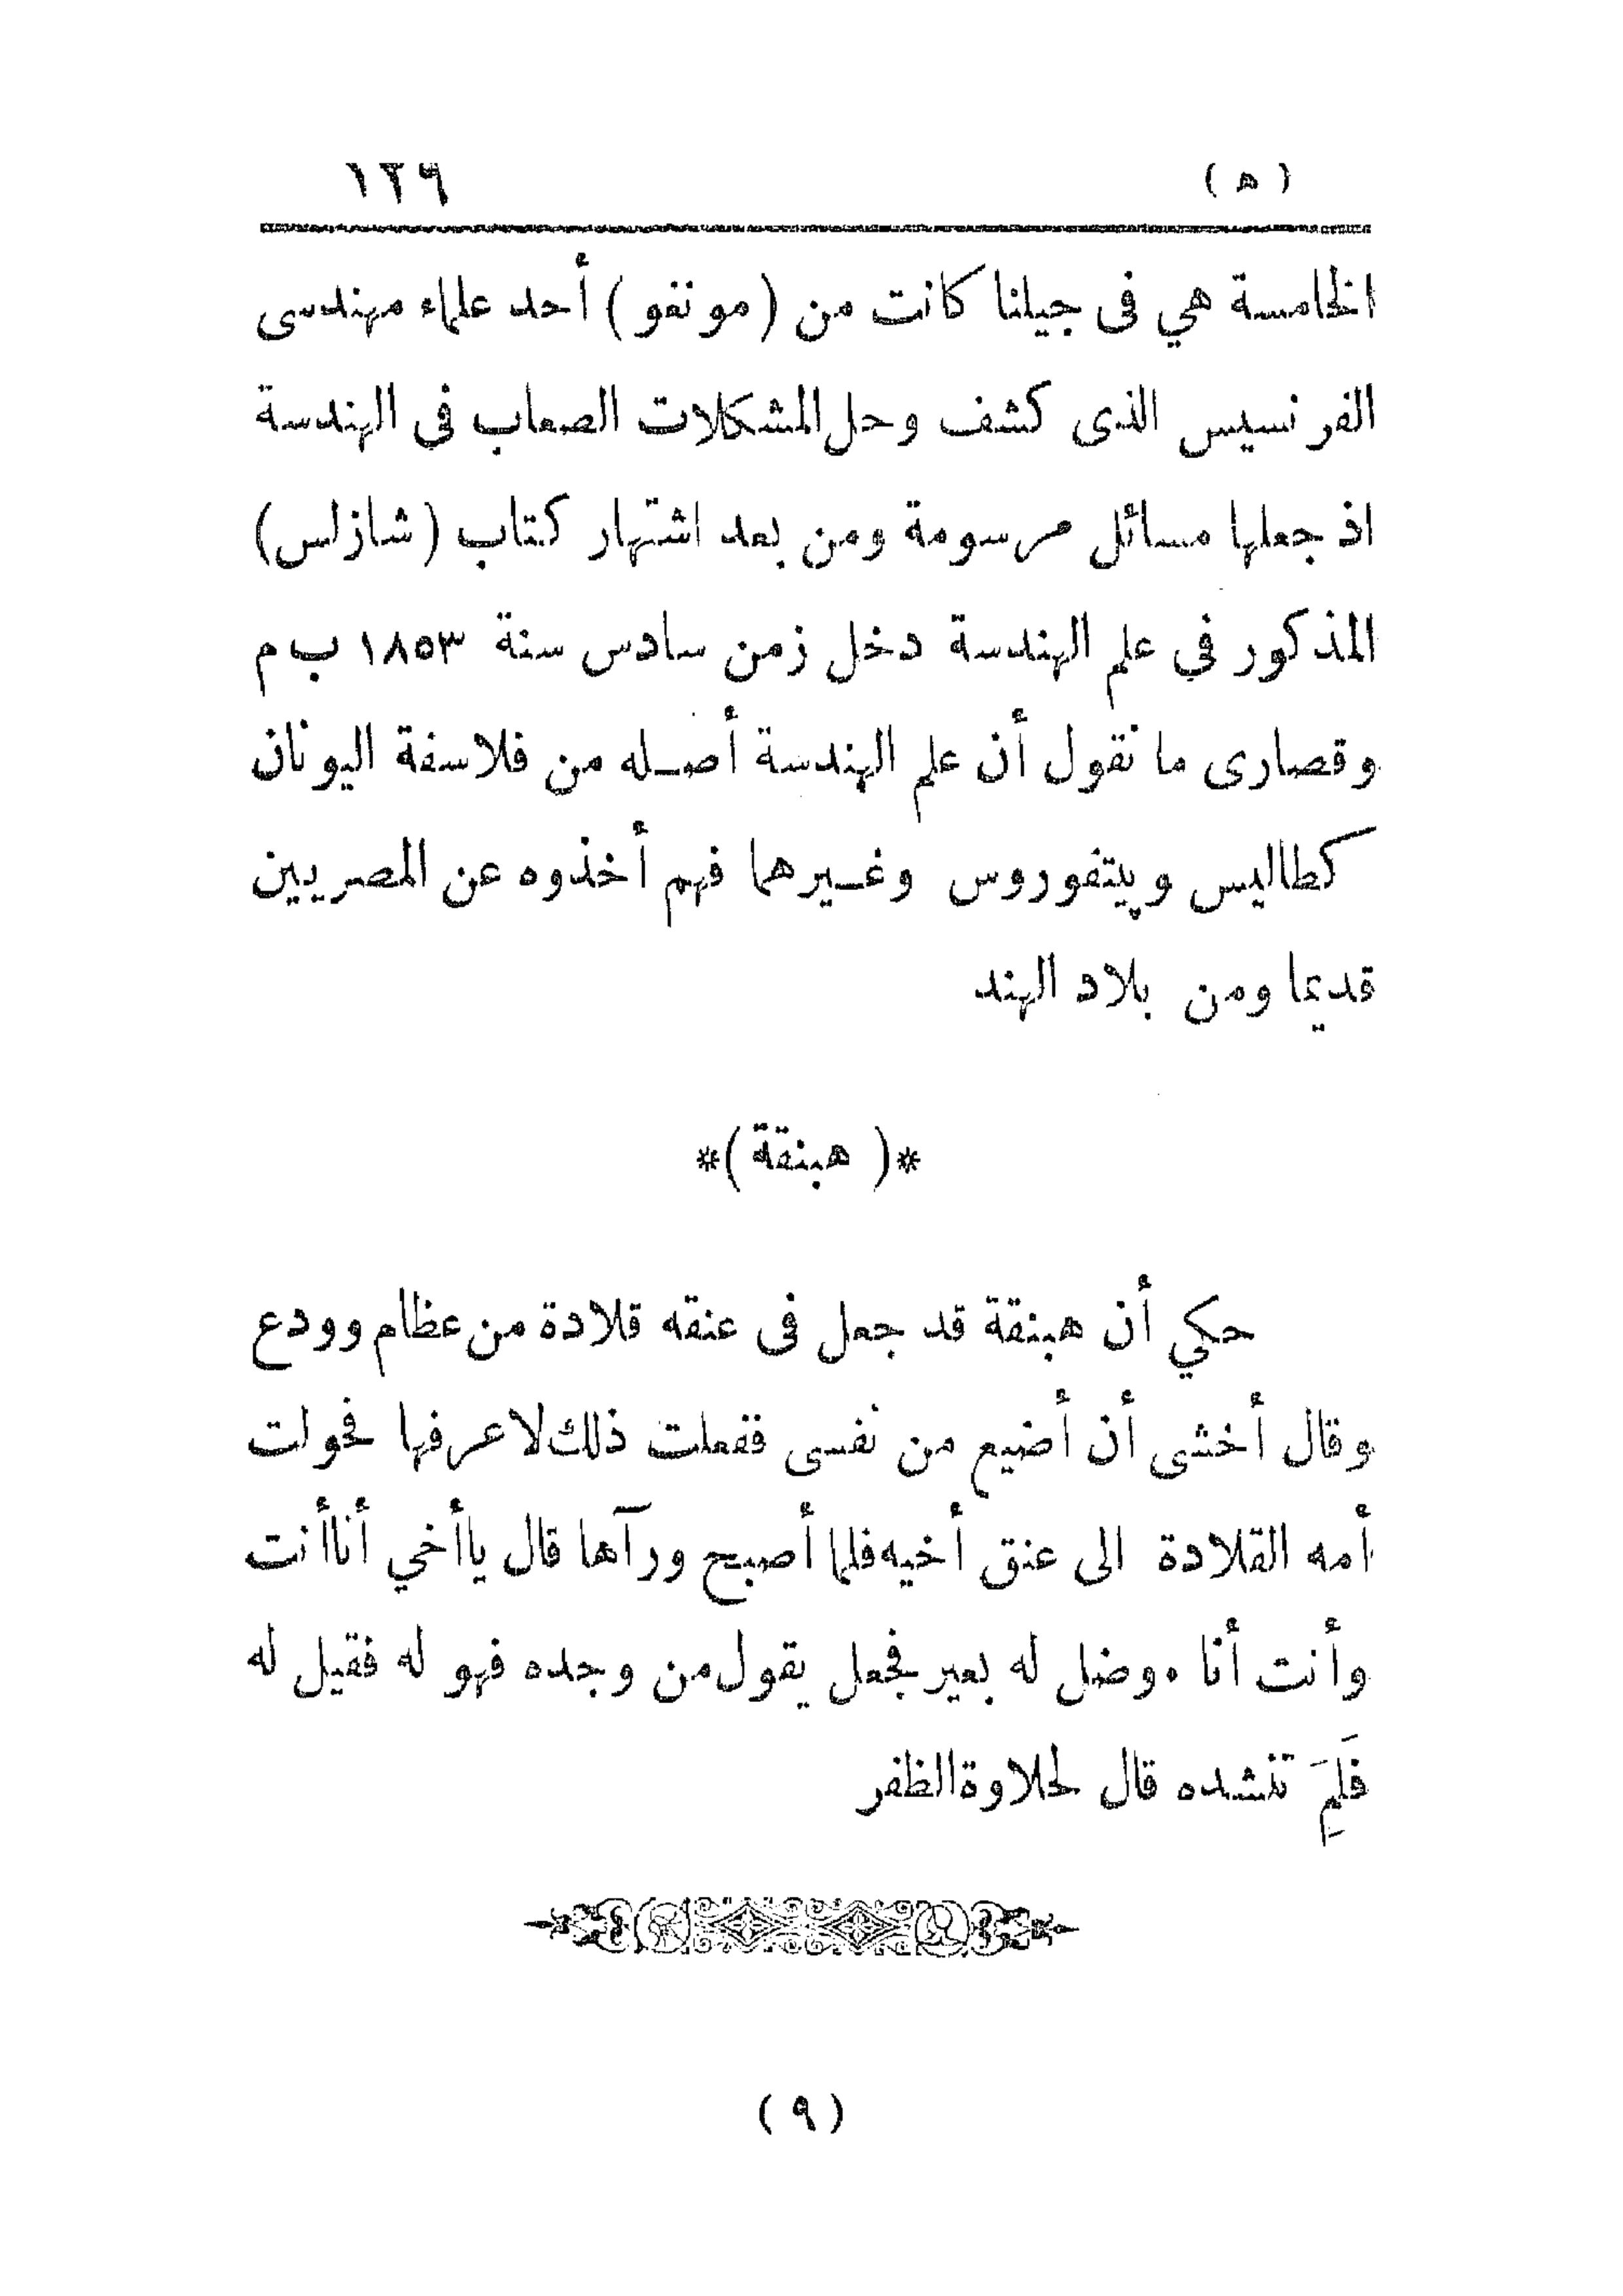 ( ه ) ١٢٩
الخامسة هي فى جيلنا كانت من ( مونفو ) أحد علماء مهندسى
الفرنسيس الذى كشف وحل المشكلات الصعاب فى الهندسة
اذ جعلها مسائل مرسومة ومن بعد اشتهار كتاب ( شازلس )
المذكور في علم الهندسة دخل زمن سادس سنة ١٨٥٣ ب م
وقصارى ما نقول أن علم الهندسة أصله من فلاسفة اليونان
كطاليس وپيتفوروس وغيرهما فهم أخذوه عن المصريين
قديما ومن بلاد الهند
*( هبنقة )*
حكي أن هبنقة قد جعل فى عنقه قلادة من عظام وودع
وقال أخشى أن أضيع من نفسى ففعلت ذلك لاعرفها فحولت
أمه القلادة الى عنق أخيه فلما أصبح ورآها قال ياأخي أناأنت
وأنت أنا . وضل له بعير فجعل يقول من وجده فهو له فقيل له
فَلِمَ تنشده قال لحلاوة الظفر
( ٩ )